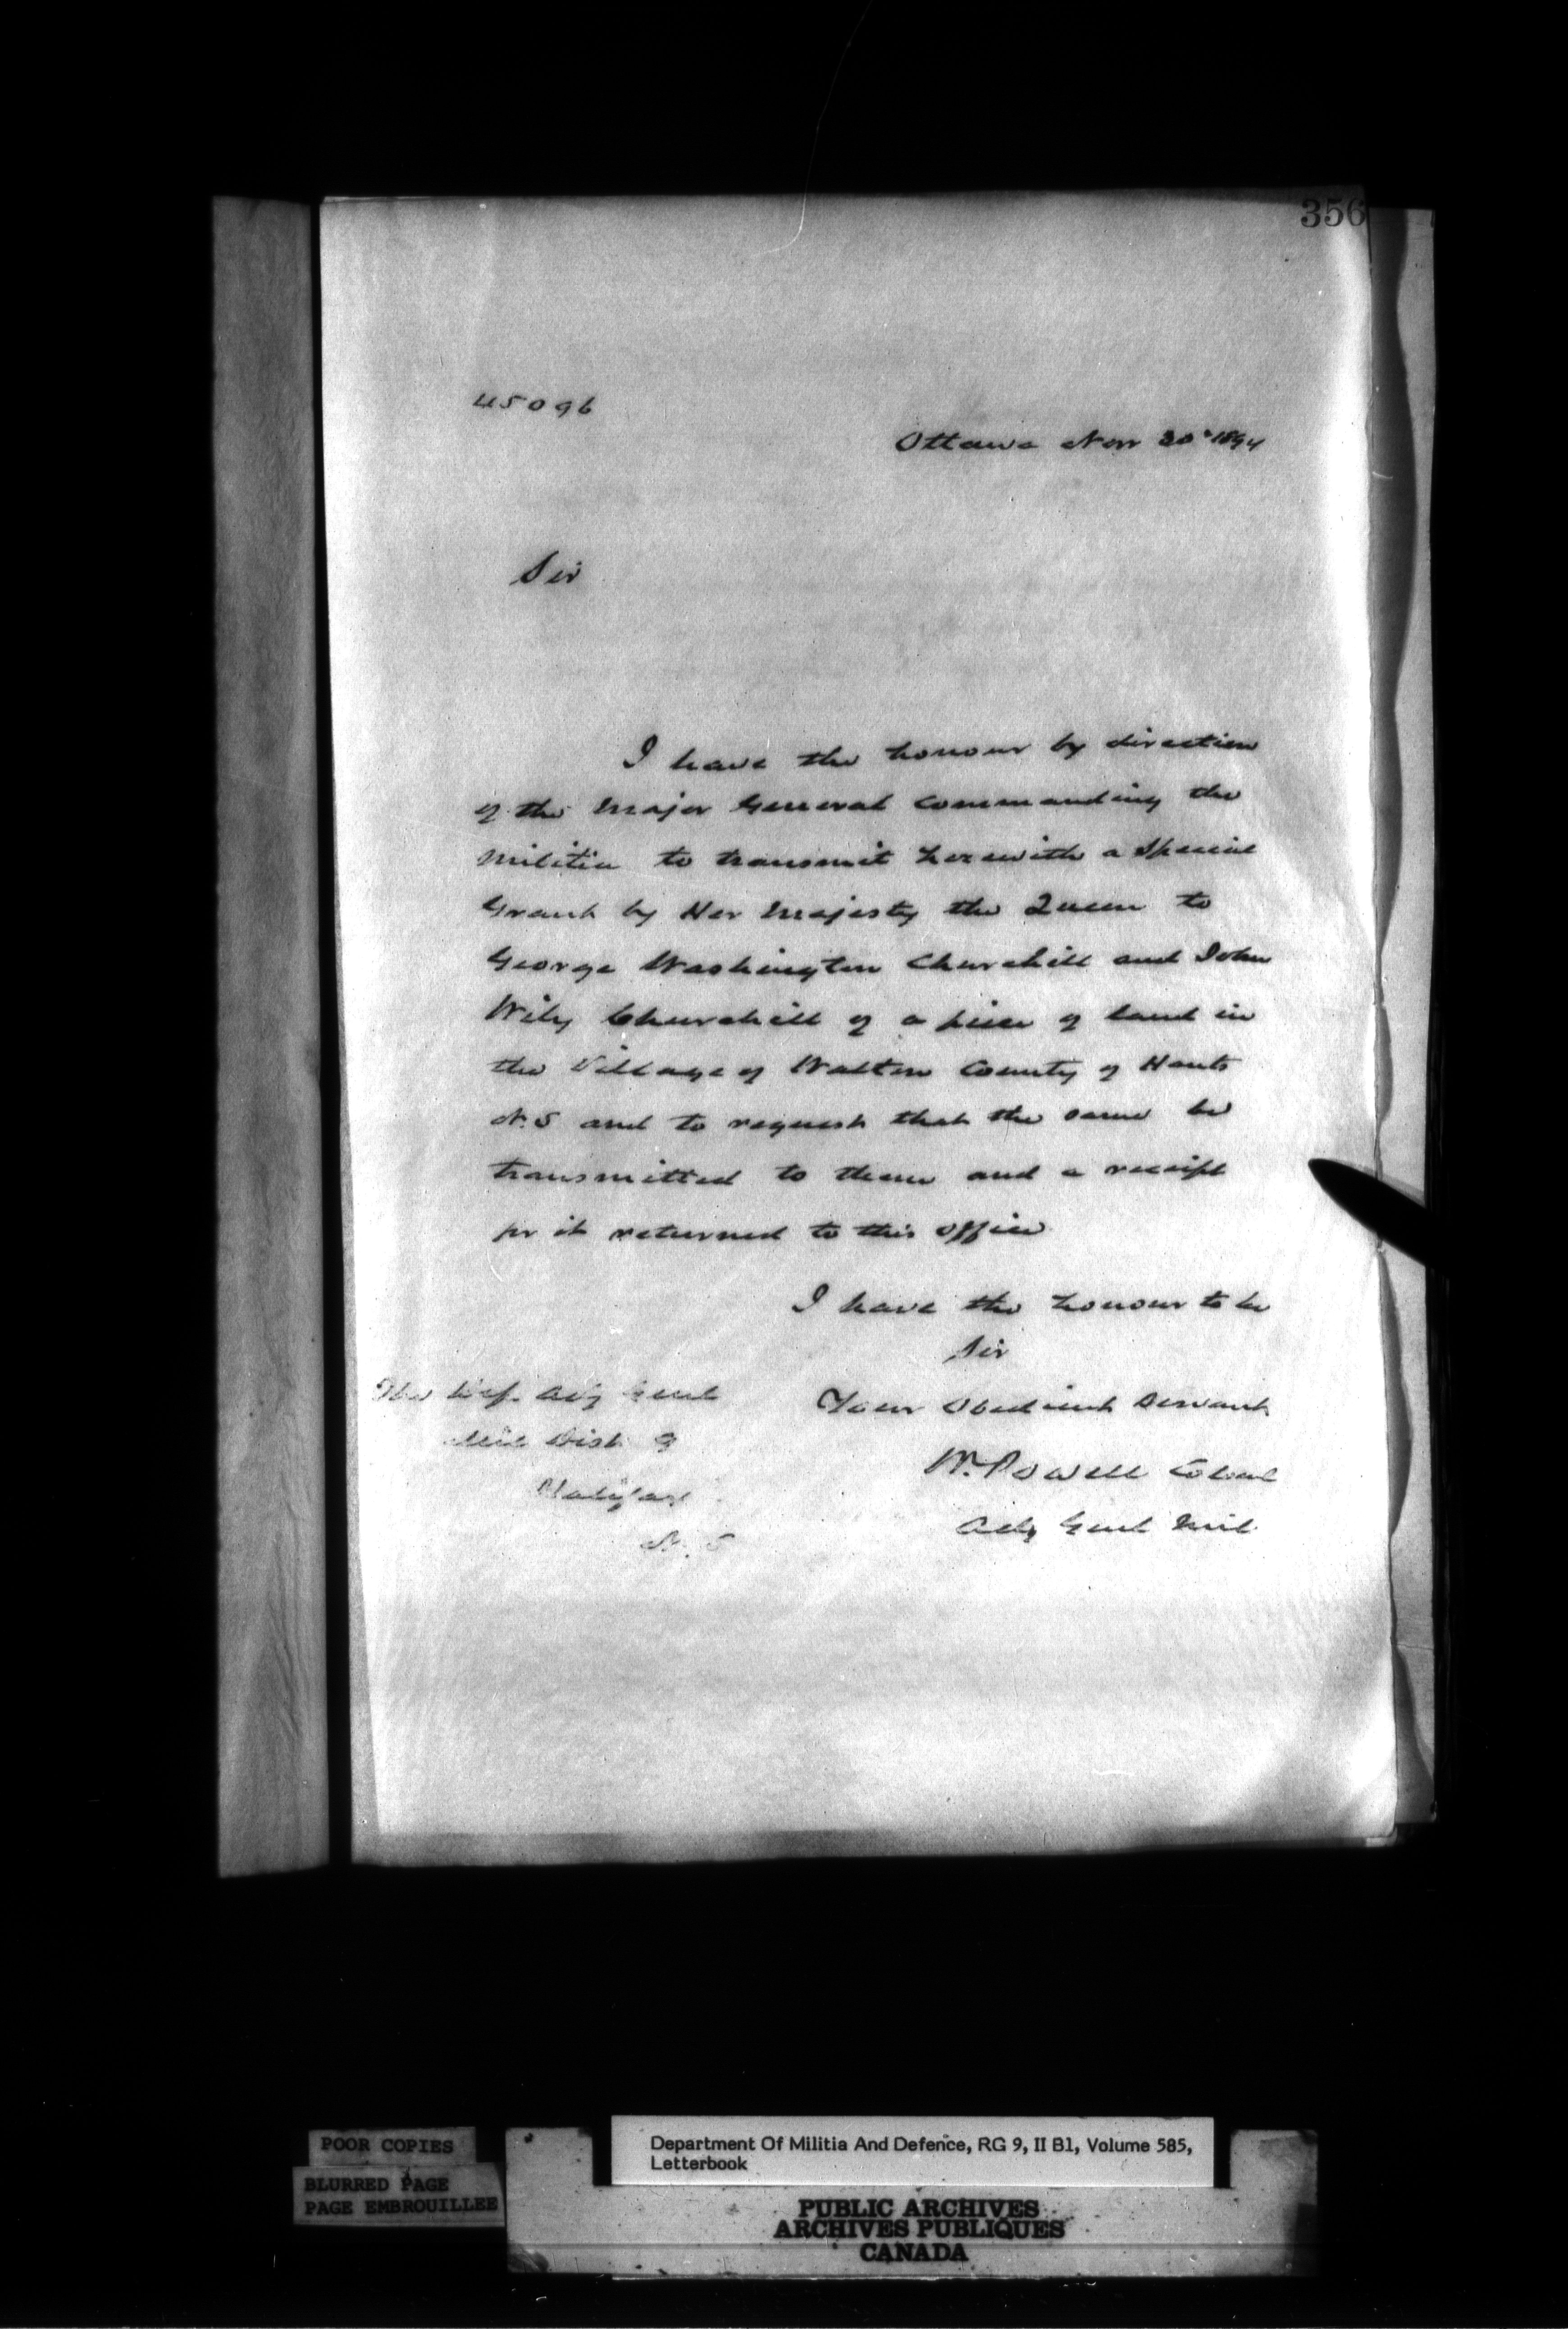 356
45096
Ottawa Nov 20th 1894
Sir
I have the honour by direction
of the Major General Commanding the
Militia to transmit herewith a Special
Grant by Her Majesty the Queen to
George Washington Churchill and John
Wily Churchill of a piece of land in
the Village of Walton County of Hants
N.S and to request that the same be
transmitted to them and a receipt
for it returned to this office
I have the honour to be
Sir
Your Obedient Servant
W. Powell Colonel
Adj Genl Mil
The Dep. Adj Genl
Mil Dist 9
Halifax
N. S
POOR COPIES
BLURRED PAGE
PAGE EMBROUILLEE
Department Of Militia And Defence, RG 9, II B1, Volume 585,
Letterbook
PUBLIC ARCHIVES
ARCHIVES PUBLIQUES
CANADA